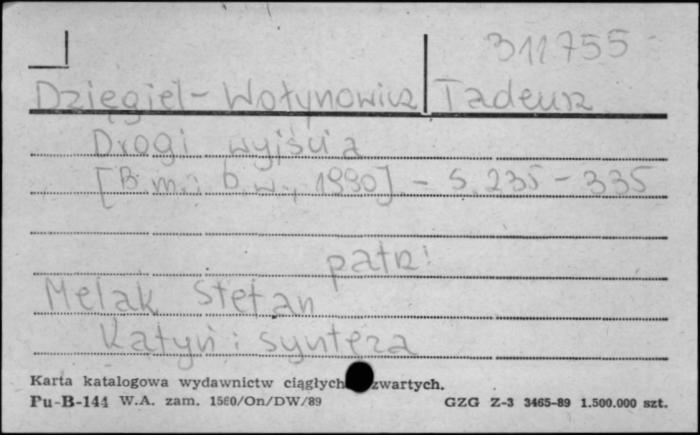 311755
Dzięgiel-Wołynowicz Tadeusz
Drogi wyjścia
[B.m.: b.w., 1990] - S. 235-335
patrz:
Melak Stefan
Katyń: synteza
Karta katalogowa wydawnictw ciągłych zwartych.
Pu-B-144 W.A. zam. 1560/On/DW/89 GZG Z-3 3465-89 1.500.000 szt.